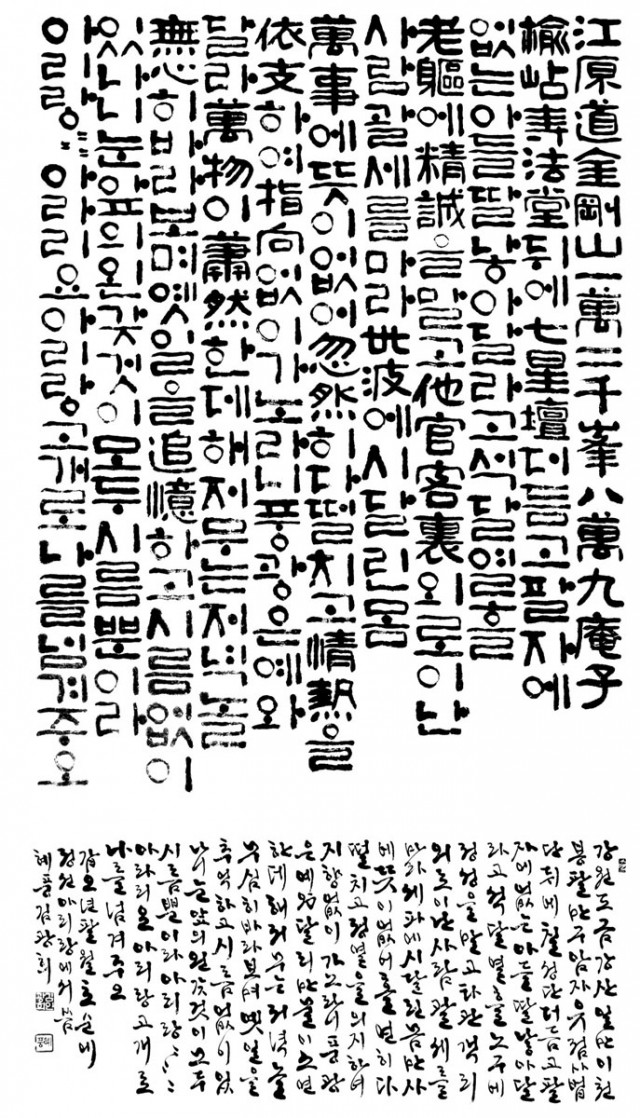 江原道金剛山一萬二千峯八萬九庵子
楡岾寺法堂뒤에七星壇더듬고팔자에
없는아들딸낳아달라고석달열흘
老軀에精誠을말고他官客裏외로이난
사람괄세를마라世波에시달린몸
萬事에뜻이없어忽然히다떨치고情熱을
依支하여指向없이가노라니풍광은예와
달라萬物이蕭然한데해저무는저녁놀
無心히바라보며옛일을追憶하고시름없이
있나니눈앞의온갖것이모두시름뿐이라
아리랑〃〃아라리요아리랑고개로나를넘겨주오
강원도금강산일만이천
봉팔만구암자유점사법
당뒤에칠성단더듬고팔
자에없는아들딸낳아달
라고석달열흘노구에
정성을말고타관객리
외로이난사람괄세를
마라세파에시달린몸만사
에뜻이없어홀연히다
떨치고정열을의지하여
지향없이가노라니풍광
은예와달라만물이소연
한데해저무는저녁놀
무심히바라보며옛일을
추억하고시름없이있
나니눈앞의온갖것이모두
시름뿐이라아리랑〃〃
아라리요아리랑고개로
나를넘겨주오
갑오년팔월초순에
정선아리랑에서씀
혜풍김광희